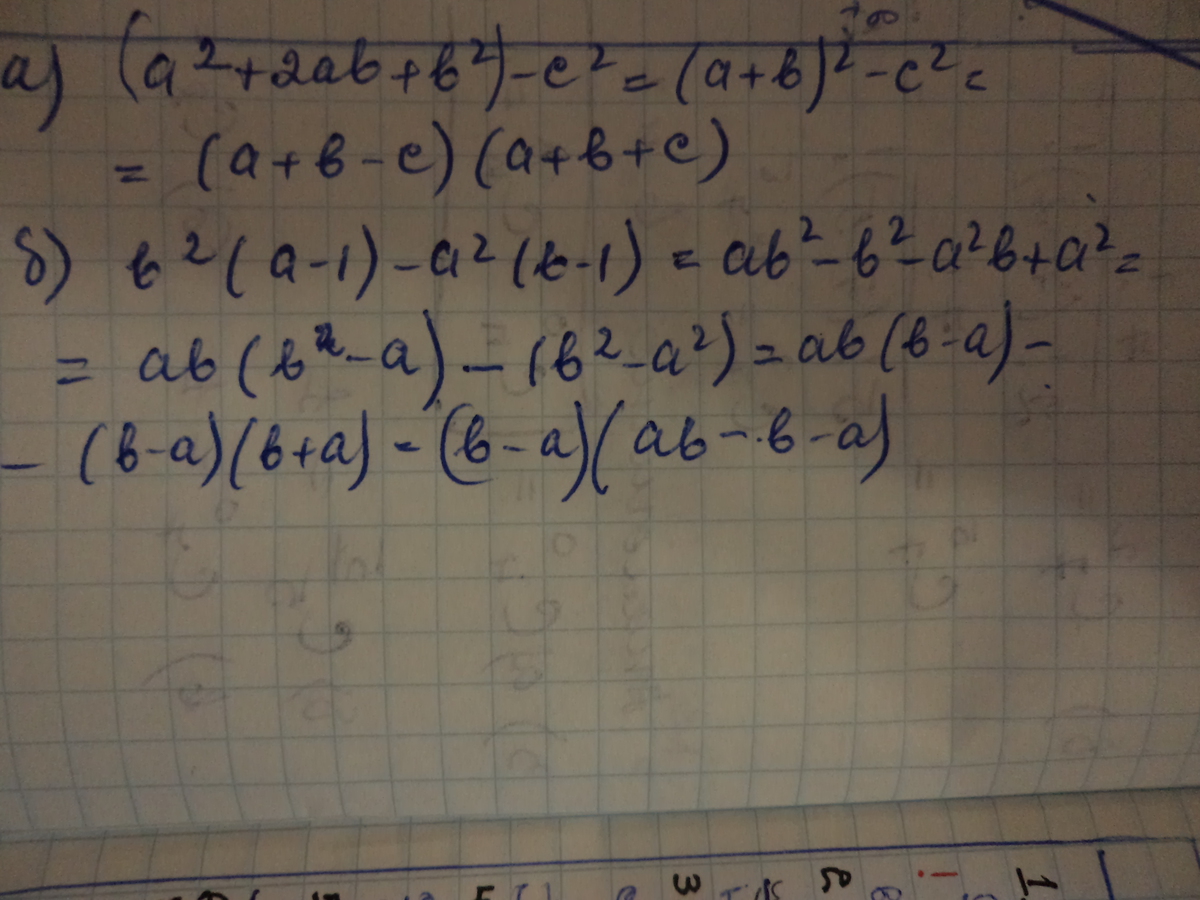 а) (a²+2ab+b²)-c²=(a+b)²-c²=
= (a+b-c)(a+b+c)
б) b²(a-1)-a²(b-1)=ab²-b²-a²b+a²=
= ab(b-a)-(b²-a²)=ab(b-a)-
-(b-a)(b+a)=(b-a)(ab-b-a)